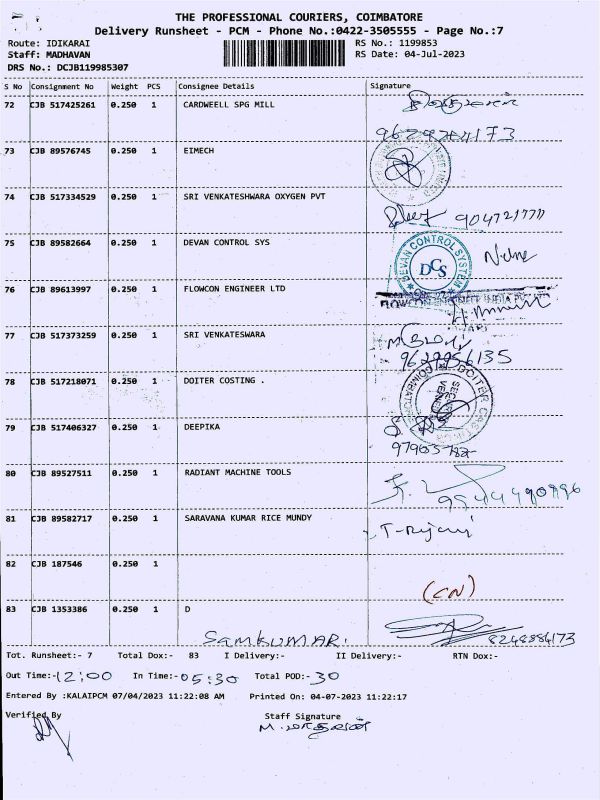 THE PROFESSIONAL COURIERS, COIMBATORE
Delivery Runsheet - PCM - Phone No.:0422-3505555 - Page No.:7
Route: IDIKARAI RS No.: 1199853
Staff: MADHAVAN RS Date: 04-Jul-2023
DRS No.: DCJB119985307
S No Consignment No Weight PCS Consignee Details Signature
72 CJB 517425261 0.250 1 CARDWEELL SPG MILL
73 CJB 89576745 0.250 1 EIMECH
74 CJB 517334529 0.250 1 SRI VENKATESHWARA OXYGEN PVT
75 CJB 89582664 0.250 1 DEVAN CONTROL SYS
DEVAN CONTROL SYSTEM
DCS
76 CJB 89613997 0.250 1 FLOWCON ENGINEER LTD
77 CJB 517373259 0.250 1 SRI VENKATESWARA
9629956135
78 CJB 517218071 0.250 1 DOITER COSTING .
79 CJB 517406327 0.250 1 DEEPIKA
80 CJB 89527511 0.250 1 RADIANT MACHINE TOOLS
81 CJB 89582717 0.250 1 SARAVANA KUMAR RICE MUNDY
82 CJB 187546 0.250 1
(CN)
83 CJB 1353386 0.250 1 D
SAMKUMAR. 8248884173
Tot. Runsheet:- 7 Total Dox:- 83 I Delivery:- II Delivery:- RTN Dox:-
Out Time:-12:00 In Time:-05:30 Total POD:-30
Entered By :KALAIPCM 07/04/2023 11:22:08 AM Printed On: 04-07-2023 11:22:17
Verified By Staff Signature